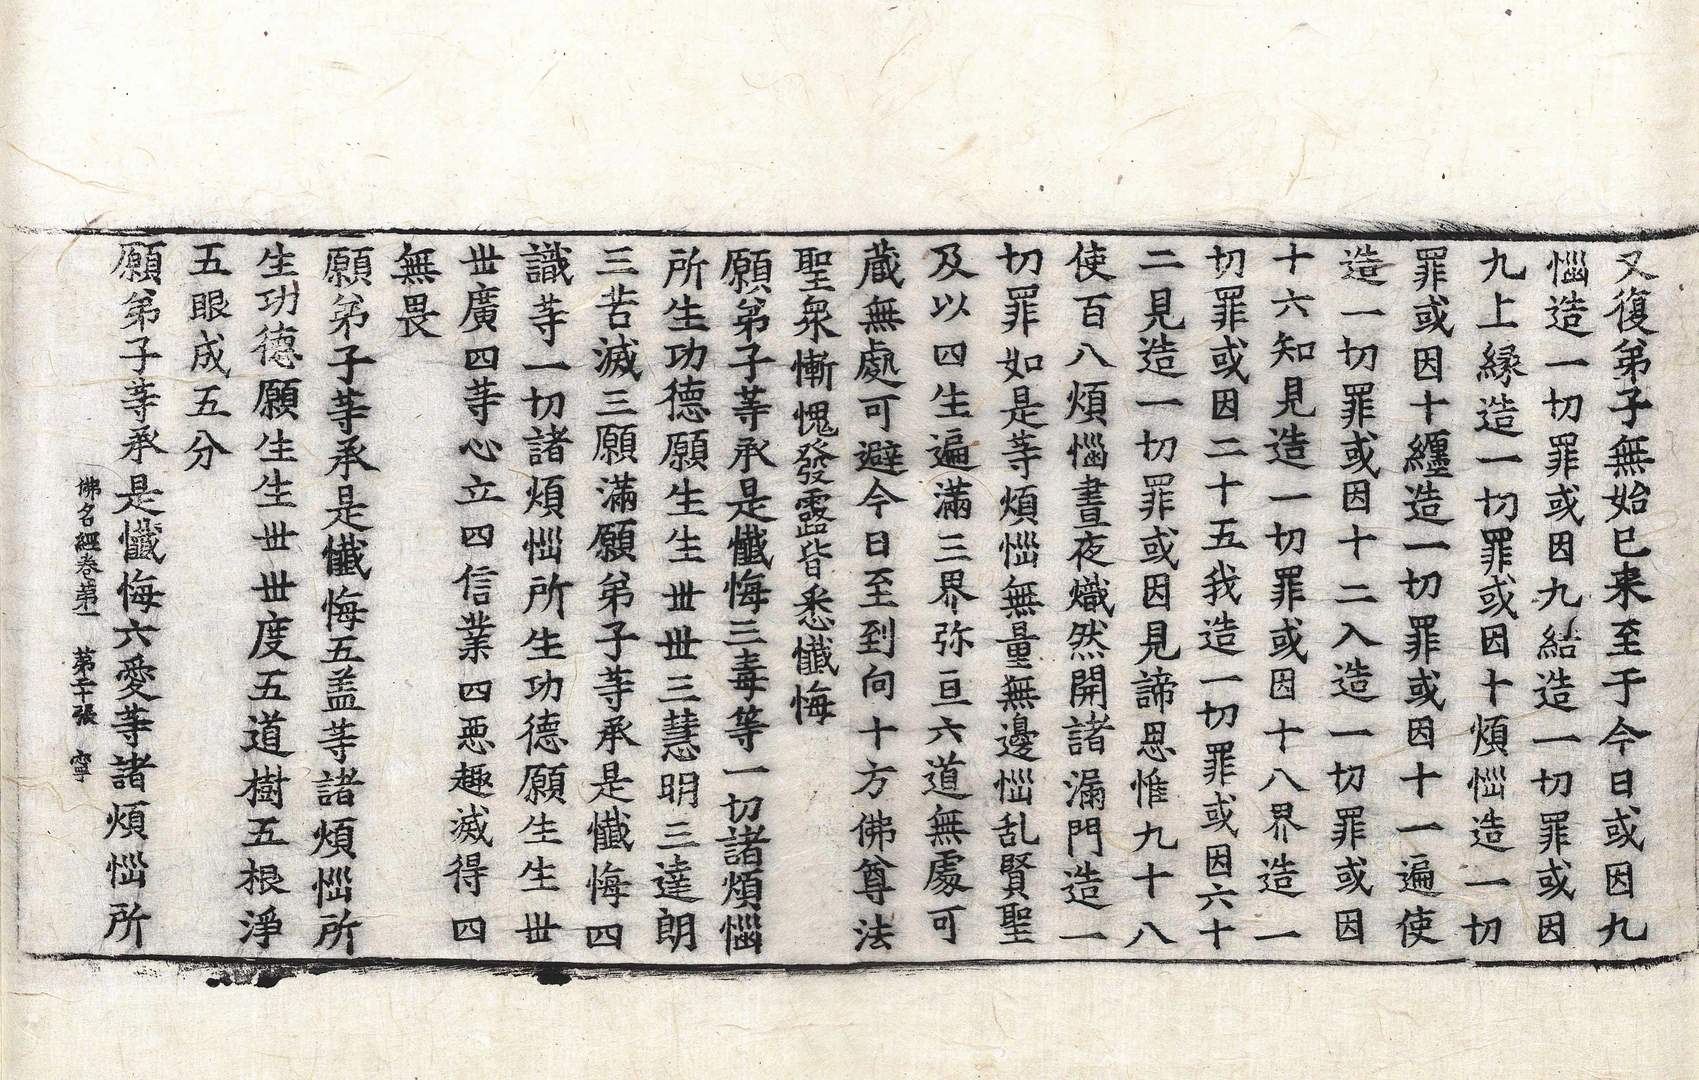 又復弟子無始已来至于今日或因九
惱造一切罪或因九結造一切罪或因
九上縁造一切罪或因十煩惱造一切
罪或因十纏造一切罪或因十一遍使
造一切罪或因十二入造一切罪或因
十六知見造一切罪或因十八界造一
切罪或因二十五我造一切罪或因六十
二見造一切罪或因見諦思惟九十八
使百八煩惱晝夜熾然開諸漏門造一
切罪如是等煩惱無量無邊惱乱賢聖
及以四生遍滿三界弥亘六道無處可
蔵無處可避今日至到向十方佛尊法
聖衆慚愧發露皆悉懺悔
願弟子等承是懺悔三毒等一切諸煩惱
所生功德願生生丗丗三慧明三達朗
三苦滅三願滿願弟子等承是懺悔四
識等一切諸煩惱所生功德願生生丗
丗廣四等心立四信業四悪趣滅得四
無畏
願弟子等承是懺悔五盖等諸煩惱所
生功德願生生丗丗度五道樹五根淨
五眼成五分
願弟子等承是懺悔六愛等諸煩惱所
佛名經卷第一 第二十張 寧